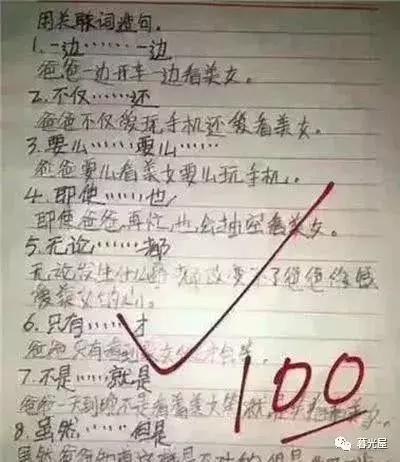 用关联词造句.
1.一边……一边
爸爸一边开车一边看美女。
2.不仅……还
爸爸不仅爱玩手机还爱看美女。
3.要么……要么……
爸爸要么看美女要么玩手机。
4.即使……也
即使爸爸,再忙,也,会抽空看美女。
5.无论……都
无论发生什么都改变不了爸爸
爱美女的心。
6.只有……才
爸爸只有看到美女
7.不是……就是
爸爸一天到晚不是看着美女笑就是
8.虽然……但是
虽然爸爸
100
暮光屋